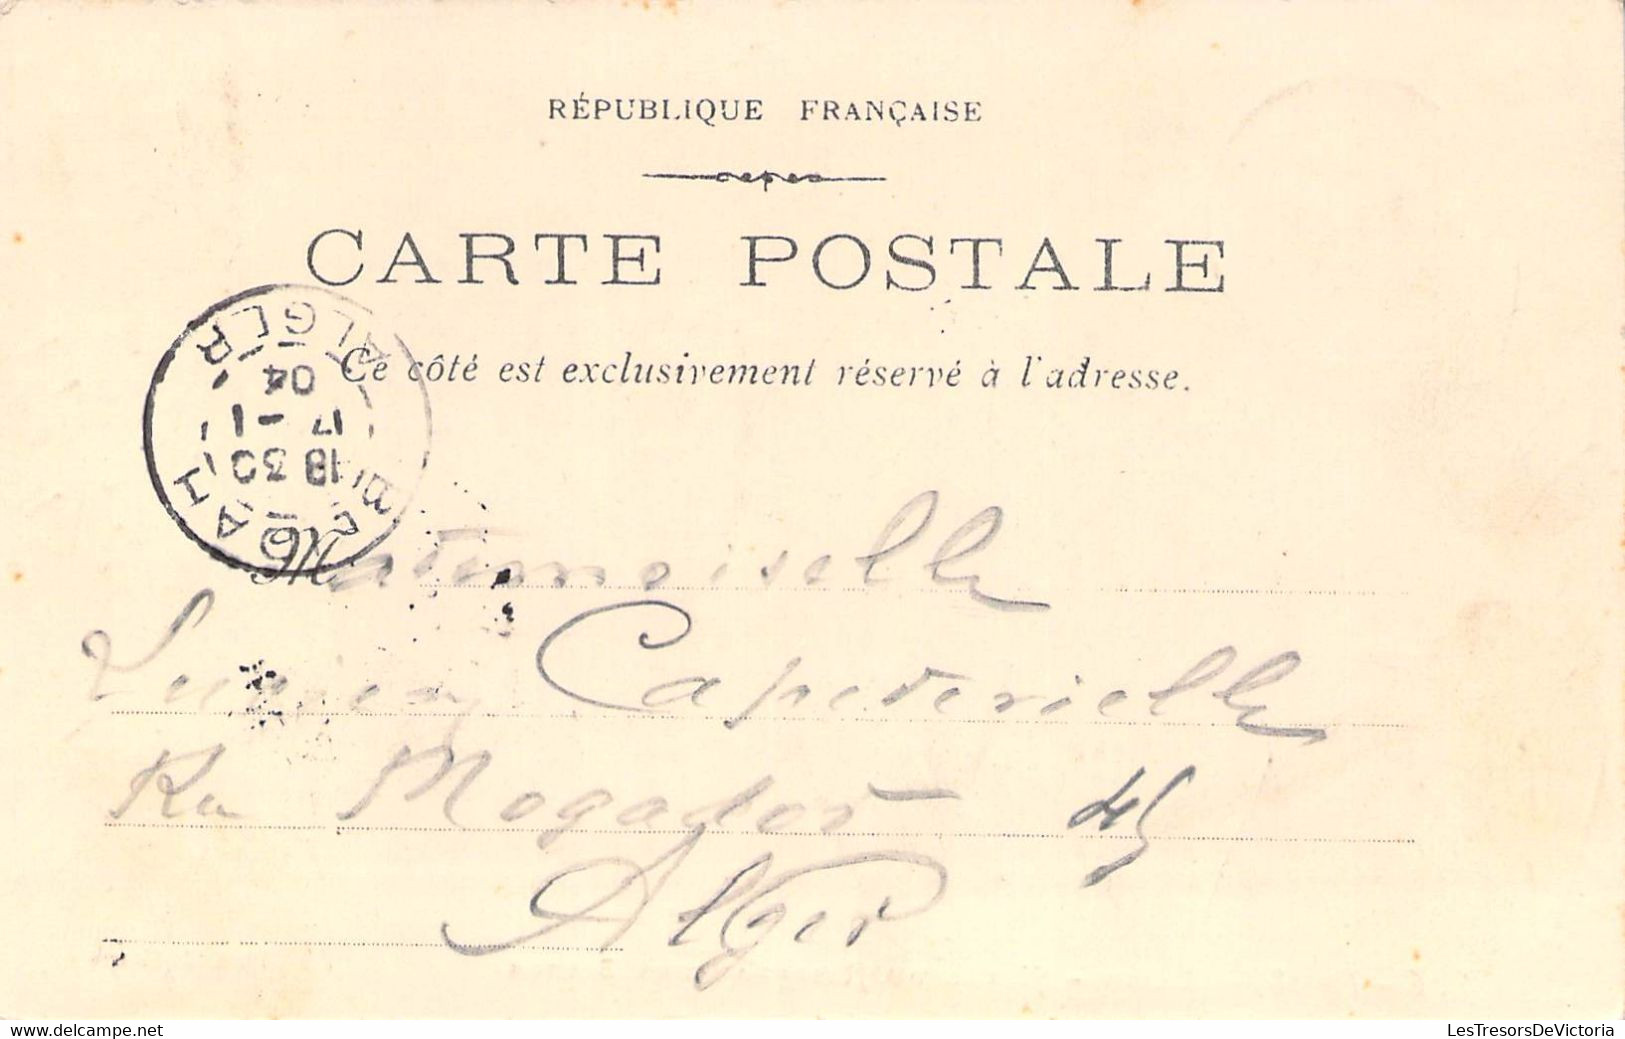 RÉPUBLIQUE FRANÇAISE
CARTE POSTALE
Ce côté est exclusivement réservé à l'adresse.
ALGER
04
17 - 1
18 30
Mademoiselle
Rue Mogador 45
Alger
delcampe.net
LesTresorsDeVictoria